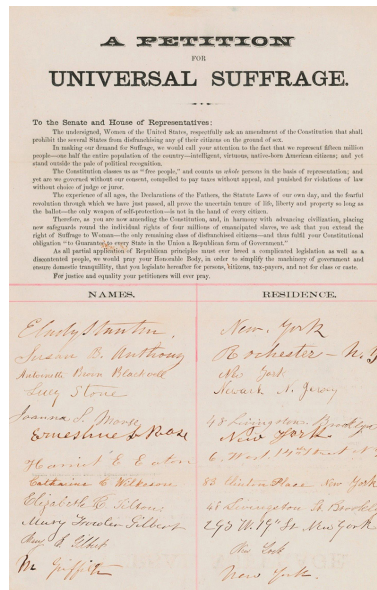 A PETITION
FOR
UNIVERSAL SUFFRAGE.
To the Senate and House of Representatives:
The undersigned, Women of the United States, respectfully ask an amendment of the Constitution that shall
prohibit the several States from disfranchising any of their citizens on the ground of sex.
In making our demand for Suffrage, we would call your attention to the fact that we represent fifteen million
people—one half the entire population of the country—intelligent, virtuous, native-born American citizens; and yet
stand outside the pale of political recognition.
The Constitution classes us as "free people," and counts us whole persons in the basis of representation; and
yet are we governed without our consent, compelled to pay taxes without appeal, and punished for violations of law
without choice of judge or juror.
The experience of all ages, the Declarations of the Fathers, the Statute Laws of our own day, and the fearful
revolution through which we have just passed, all prove the uncertain tenure of life, liberty and property so long as
the ballot—the only weapon of self-protection—is not in the hand of every citizen.
Therefore, as you are now amending the Constitution, and, in harmony with advancing civilization, placing
new safeguards round the individual rights of four millions of emancipated slaves, we ask that you extend the
right of Suffrage to Woman—the only remaining class of disfranchised citizens—and thus fulfil your Constitutional
obligation "to Guarantee to every State in the Union a Republican form of Government."
As all partial application of Republican principles must ever breed a complicated legislation as well as a
discontented people, we would pray your Honorable Body, in order to simplify the machinery of government and
ensure domestic tranquillity, that you legislate hereafter for persons, citizens, tax-payers, and not for class or caste.
For justice and equality your petitioners will ever pray.
NAMES. RESIDENCE.
E Cady Stanton, New York
Susan B. Anthony Rochester - N.Y
Antoinette Brown Blackwell New York
Lucy Stone Newark N. Jersey
Joanna S. Morse 48 Livingston. Brooklyn
Ernestine L Rose New York
Harriet E. Eaton 6. West 14th Street N.
Catharine C Wilkeson 83 Clinton Place New York
Elizabeth R. Tilton 48 Livingston St. Brooklyn
Mary Fowler Gilbert 293 W. 19th St New York
Gilbert New York
M Griffith New York.